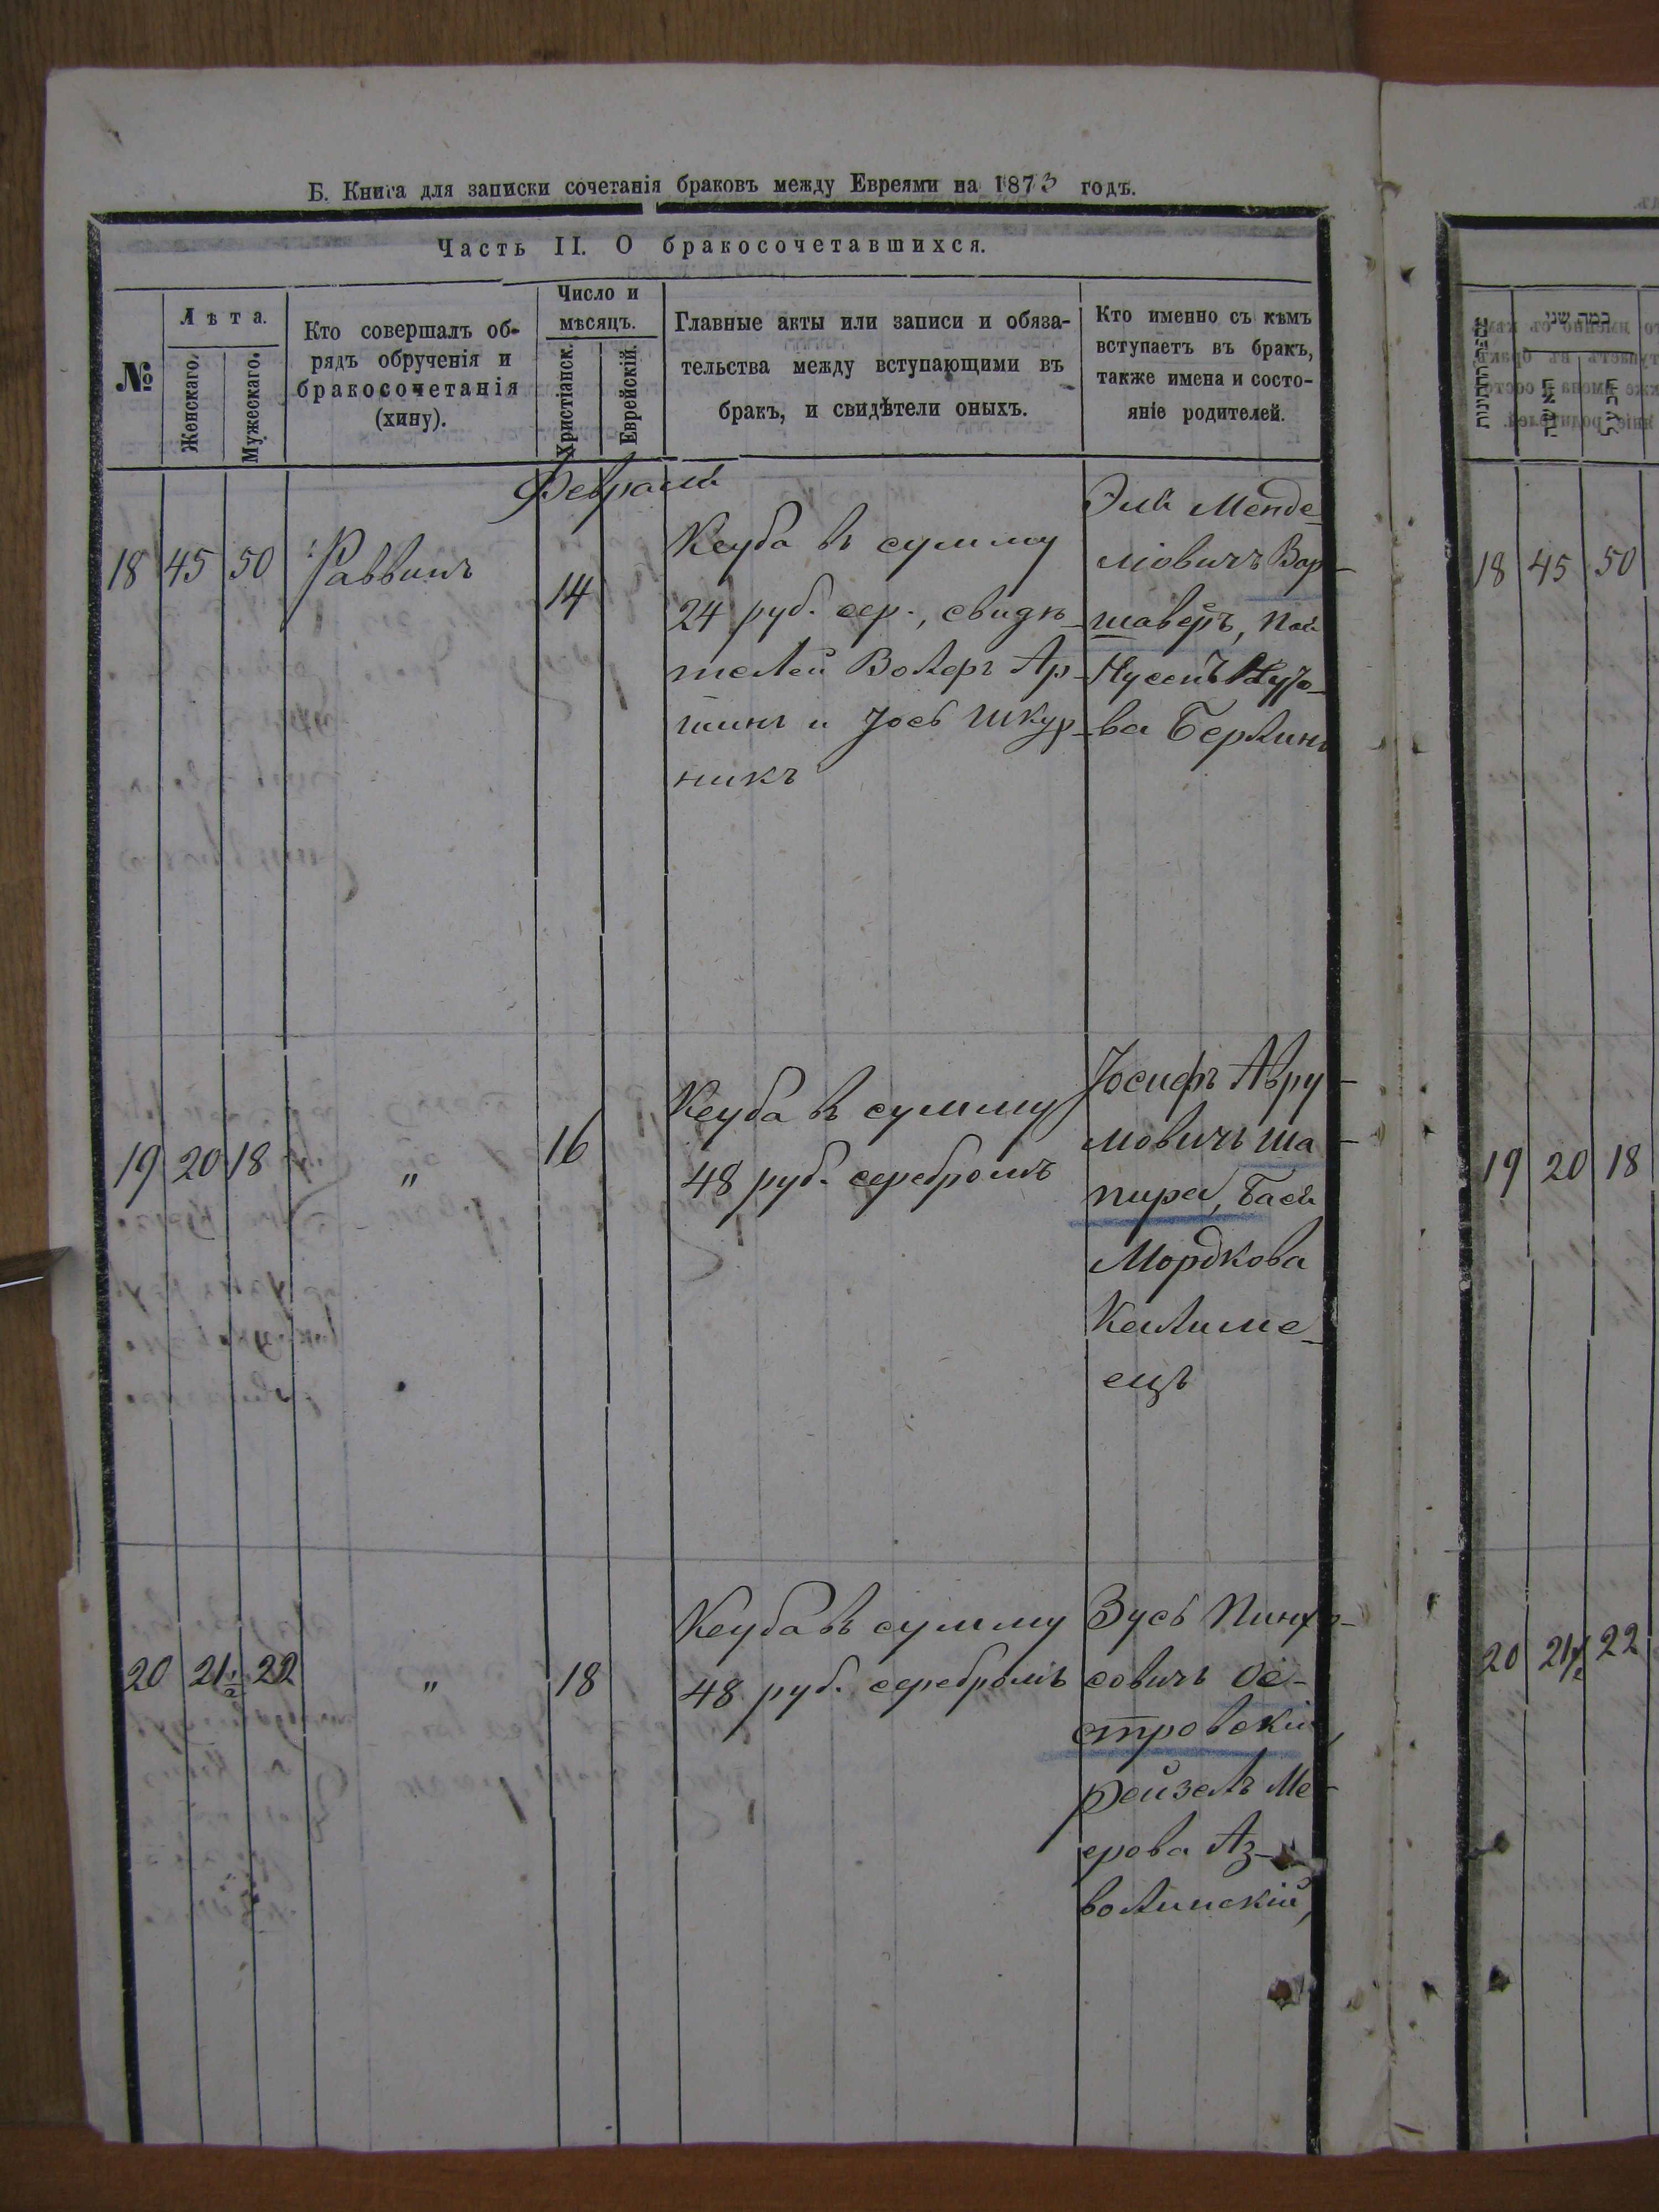 Б. Книга для записки сочетанія браковъ между Евреями на 1873 годъ.
Часть II. О бракосочетавшихся.
№
Лѣта.
Женскаго.
Мужескаго.
Кто совершалъ об-
рядъ обрученія и
бракосочетанія
(хину).
Число и
мѣсяцъ.
Христіанск.
Еврейскій.
Главные акты или записи и обяза-
тельства между вступающими въ
бракъ, и свидѣтели оныхъ.
Кто именно съ кѣмъ
вступаетъ въ бракъ,
также имена и состо-
яніе родителей.
Февраль
18 45 50 Раввинъ 14
Кеуба въ сумму
24 руб. сер., свидѣ-
телей Волеръ Ар-
шинъ и Іось Шкур-
никъ
Эли Менде-
ліовичъ Вар-
шаверъ,
Нусенъ
ва Берлинъ
19 20 18 " 16
Кеуба въ сумму
48 руб. серебромъ
Іосифъ Авру-
мовичъ Ша-
пира, Бася
Мордкова
Калиме-
ецъ
20 21½ 22 " 18
Кеуба въ сумму
48 руб. серебромъ
Зусь Пинхо-
совичъ Ос-
тровскій,
Рейзель Ме-
ерова Аз-
волинскій,
כמה שני
האשה
18 45 50
19 20 18
20 21½ 22